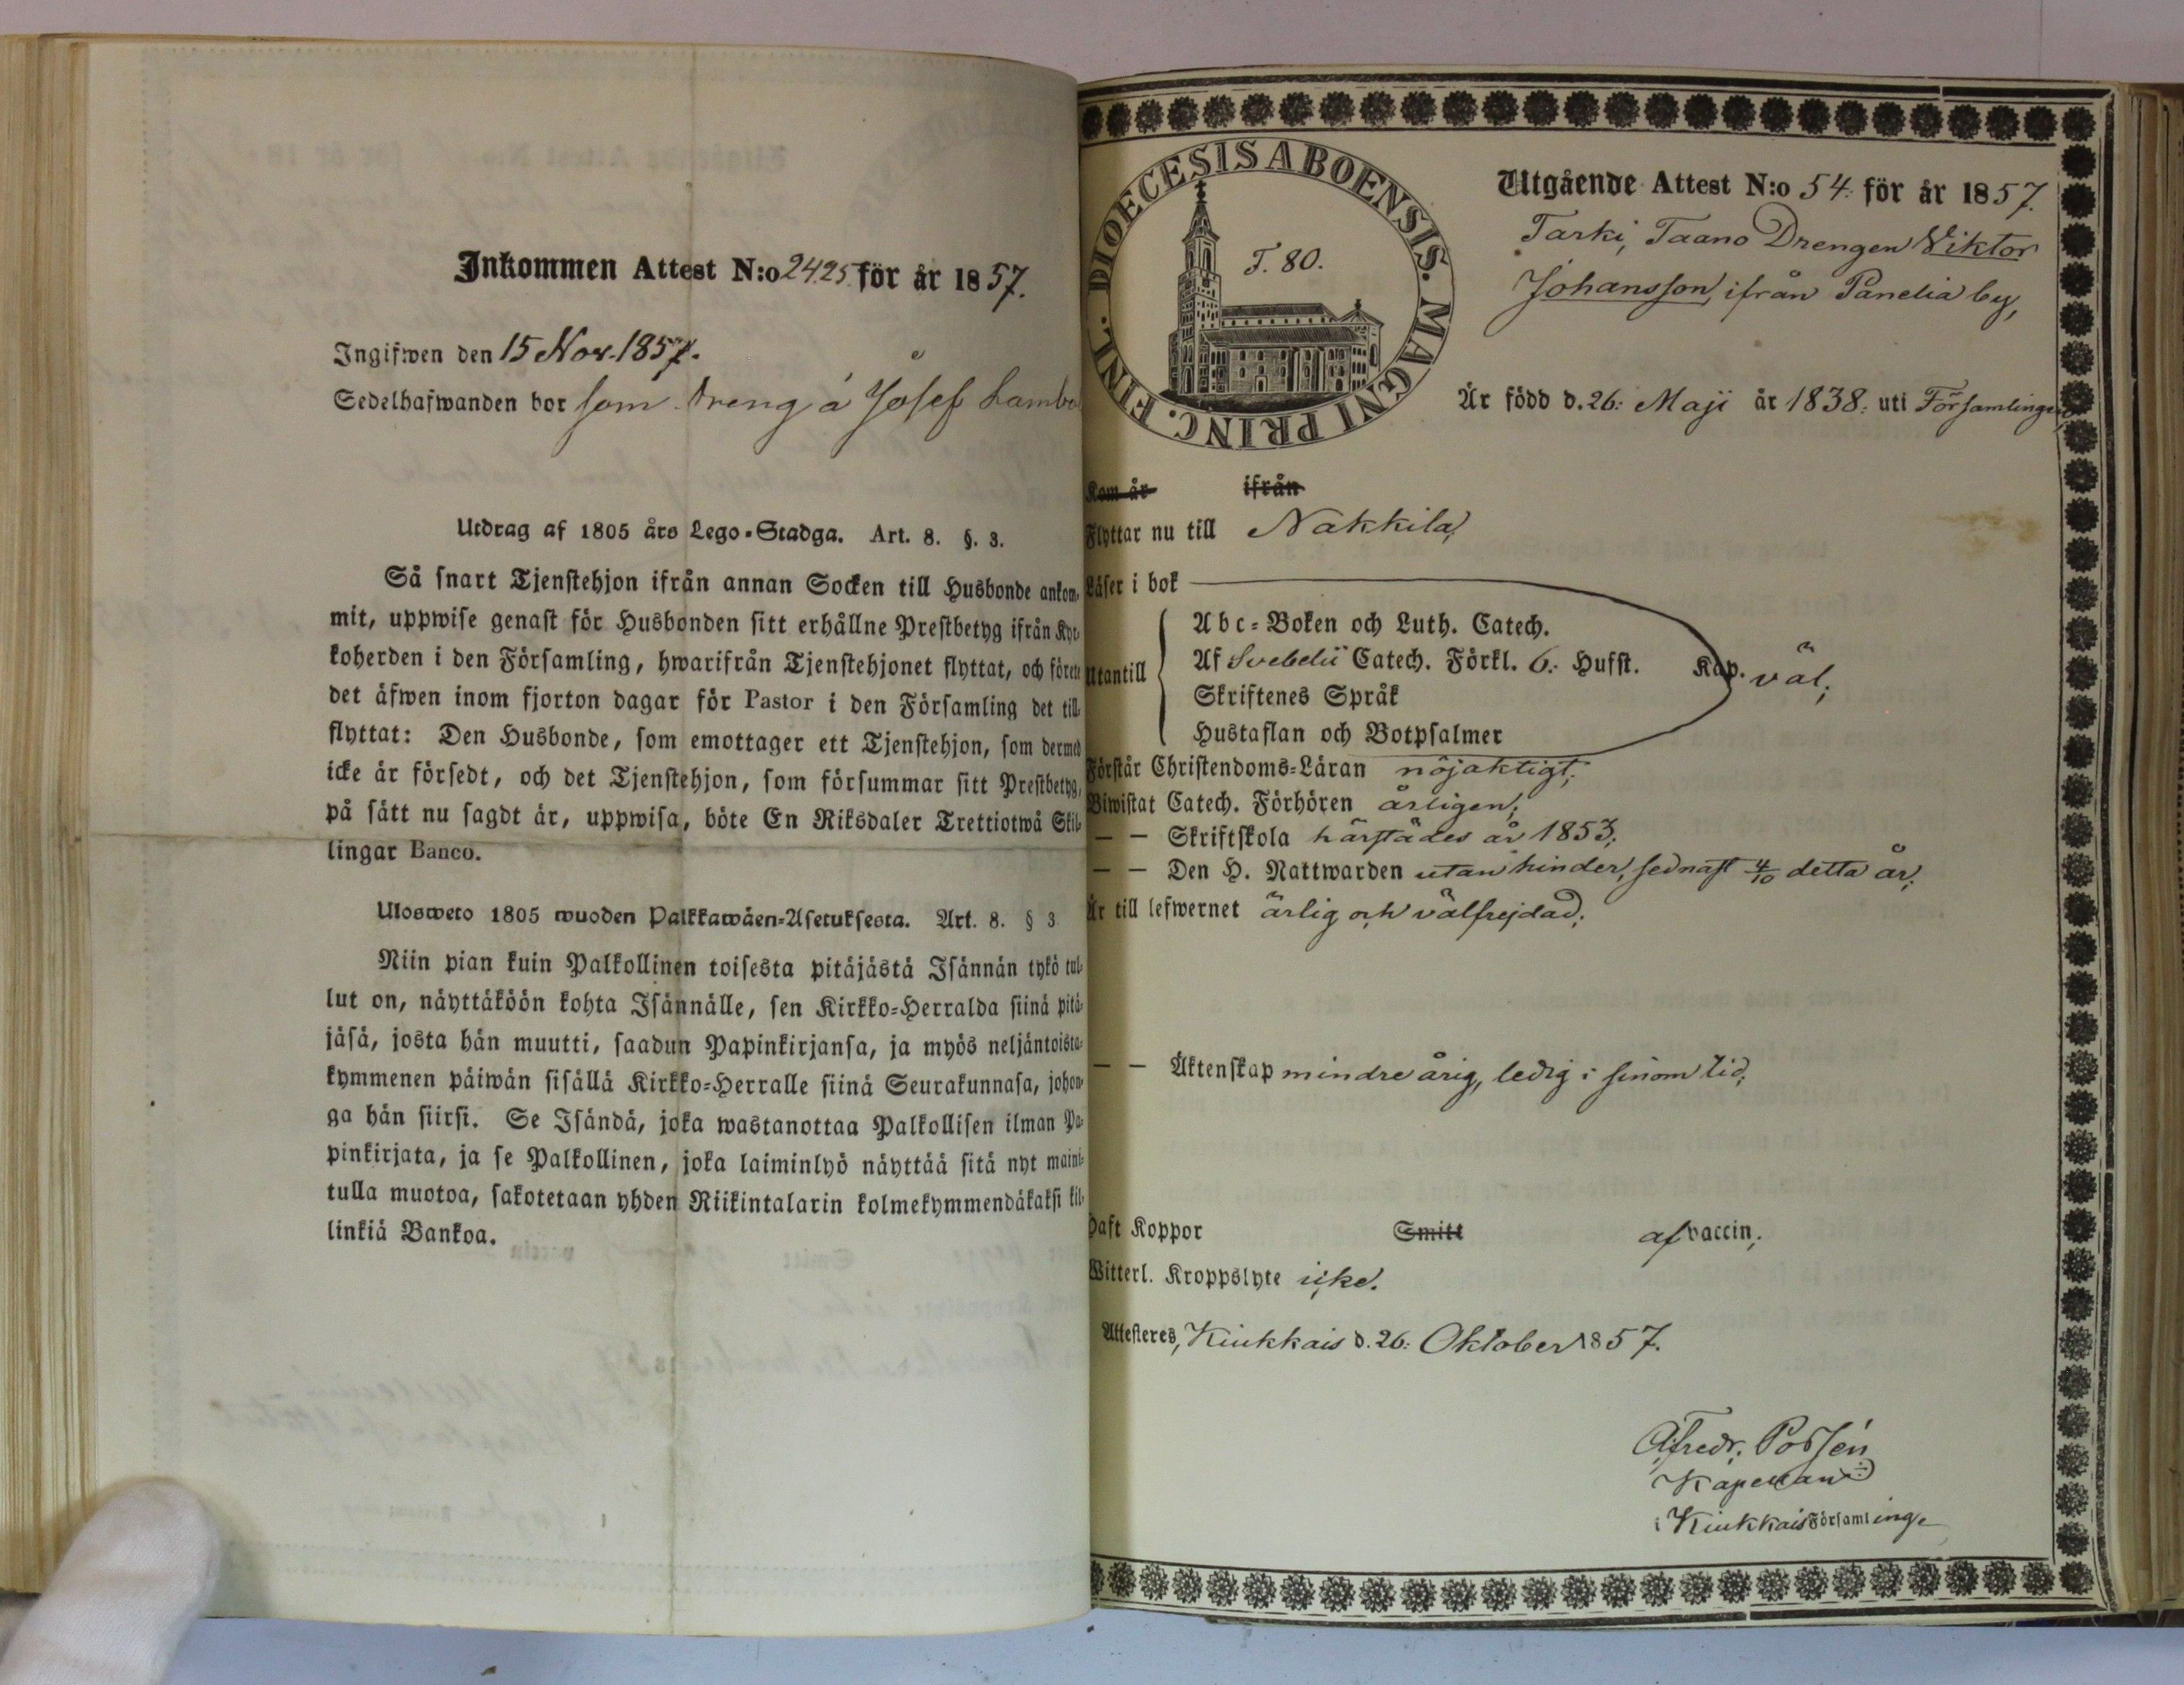 Inkommen Attest N:o 24.25. för år 1857.
Ingifwen den 15 Nov. 1857.
Sedelhafwanden bor som Dreng å Josef Lambo
Utdrag af 1805 års Lego-Stadga. Art. 8. §. 3.
Så snart Tjenstehjon ifrån annan Socken till Husbonde ankom-
mit, uppwise genast för Husbonden sitt erhållne Prestbetyg ifrån Kyr-
koherden i den Församling, hwarifrån Tjenstehjonet flyttat, och förete
det äfwen inom fjorton dagar för Pastor i den Församling det till-
flyttat: Den Husbonde, som emottager ett Tjenstehjon, som dermed
icke är försedt, och det Tjenstehjon, som försummar sitt Prestbetyg,
på sätt nu sagdt är, uppwisa, böte En Riksdaler Trettiotwå Skil-
lingar Banco.
Ulosweto 1805 wuoden Palkkawäen-Asetuksesta. Art. 8. § 3
Niin pian kuin Palkollinen toisesta pitäjästä Isännän tykö tul-
lut on, näyttäköön kohta Isännälle, sen Kirkko-Herralda siinä pitä-
jäsä, josta hän muutti, saadun Papinkirjansa, ja myös neljäntoista-
kymmenen päiwän sisällä Kirkko-Herralle siinä Seurakunnasa, johon-
ga hän siirsi. Se Isändä, joka wastanottaa Palkollisen ilman Pa-
pinkirjata, ja se Palkollinen, joka laiminlyö näyttää sitä nyt maini-
tulla muotoa, sakotetaan yhden Riikintalarin kolmekymmendäkaksi kil-
linkiä Bankoa.
DIOECESIS ABOENSIS. MAGNI PRINC. FINL.
F. 80.
Utgående Attest N:o 54. för år 1857.
Tarki, Taano Drengen Viktor
Johansson, ifrån Panelia by,
Är född d. 26: Maji år 1838: uti Församlingen,
Kom år ifrån
Flyttar nu till Nakkila,
Läser i bok
Abc-Boken och Luth. Catech.
Utantill Af Svebelii Catech. Förkl. 6: Hufst. Kap. väl;
Skriftenes Språk
Hustaflan och Botpsalmer
Förstår Christendoms-Läran nöjaktigt;
Biwistat Catech. Förhören årligen;
— — Skriftskola härstädes år 1853;
— — Den H. Nattwarden utan hinder, sednast 4/10 detta år;
Är till lefwernet ärlig och välfrejdad;
— — Äktenskap mindre årig, ledig i sinom tid;
Haft Koppor Smitt af vaccin;
Witterl. Kroppslyte icke.
Attesteres, Kiukkais d. 26: Oktober 1857.
A. Fredr. Possén
Kapellan
i Kiukkais Församling.